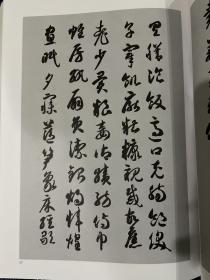 具膳飡飯適口充腸飽飫
享宰飢厭糟糠親戚故舊
老少異糧妾御績紡侍巾
帷房紈扇員潔銀燭煒煌
晝眠夕寐藍笋象床絃歌